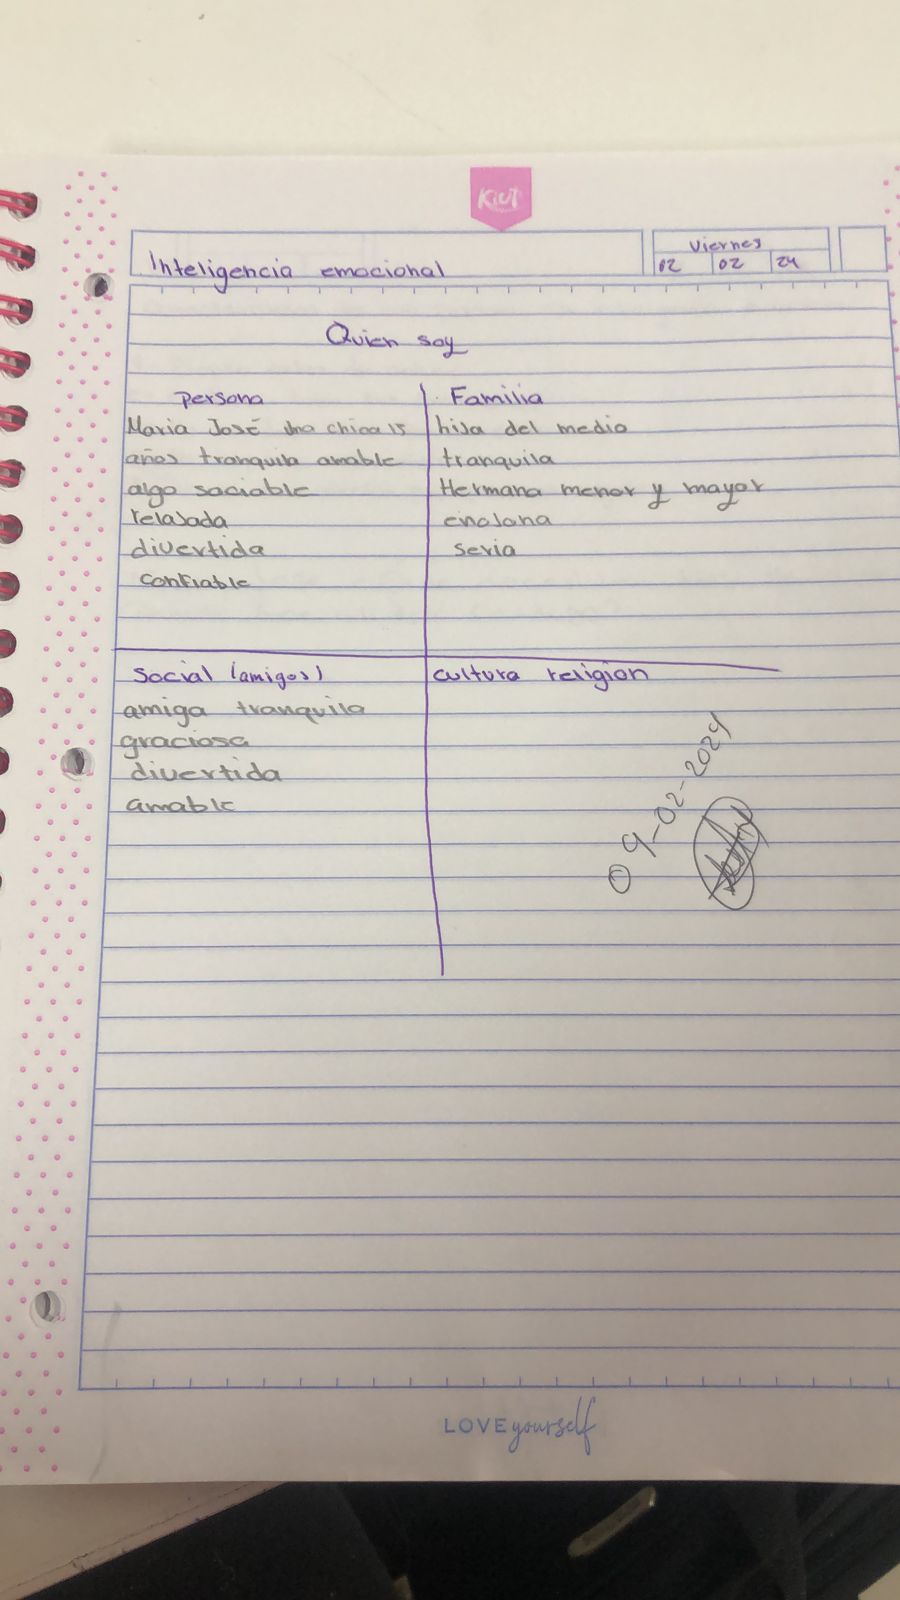 Kiut
Viernes
Inteligencia emocional
02 02 24
Quien soy
Persona
Maria José una chica 15
años tranquila amable
algo sociable
relajada
divertida
confiable
Familia
hija del medio
tranquila
Hermana menor y mayor
enojona
seria
Social (amigos)
amiga tranquila
graciosa
divertida
amable
cultura religion
09-02-2024
LOVE yourself